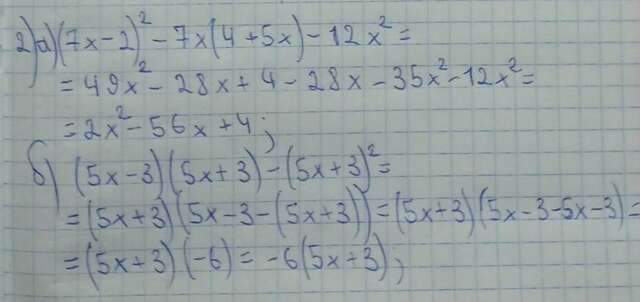 2) а) (7x-2)² - 7x(4+5x) - 12x² =
= 49x² - 28x + 4 - 28x - 35x² - 12x² =
= 2x² - 56x + 4;
б) (5x-3)(5x+3) - (5x+3)² =
= (5x+3)(5x-3-(5x+3)) = (5x+3)(5x-3-5x-3) =
= (5x+3)(-6) = -6(5x+3);